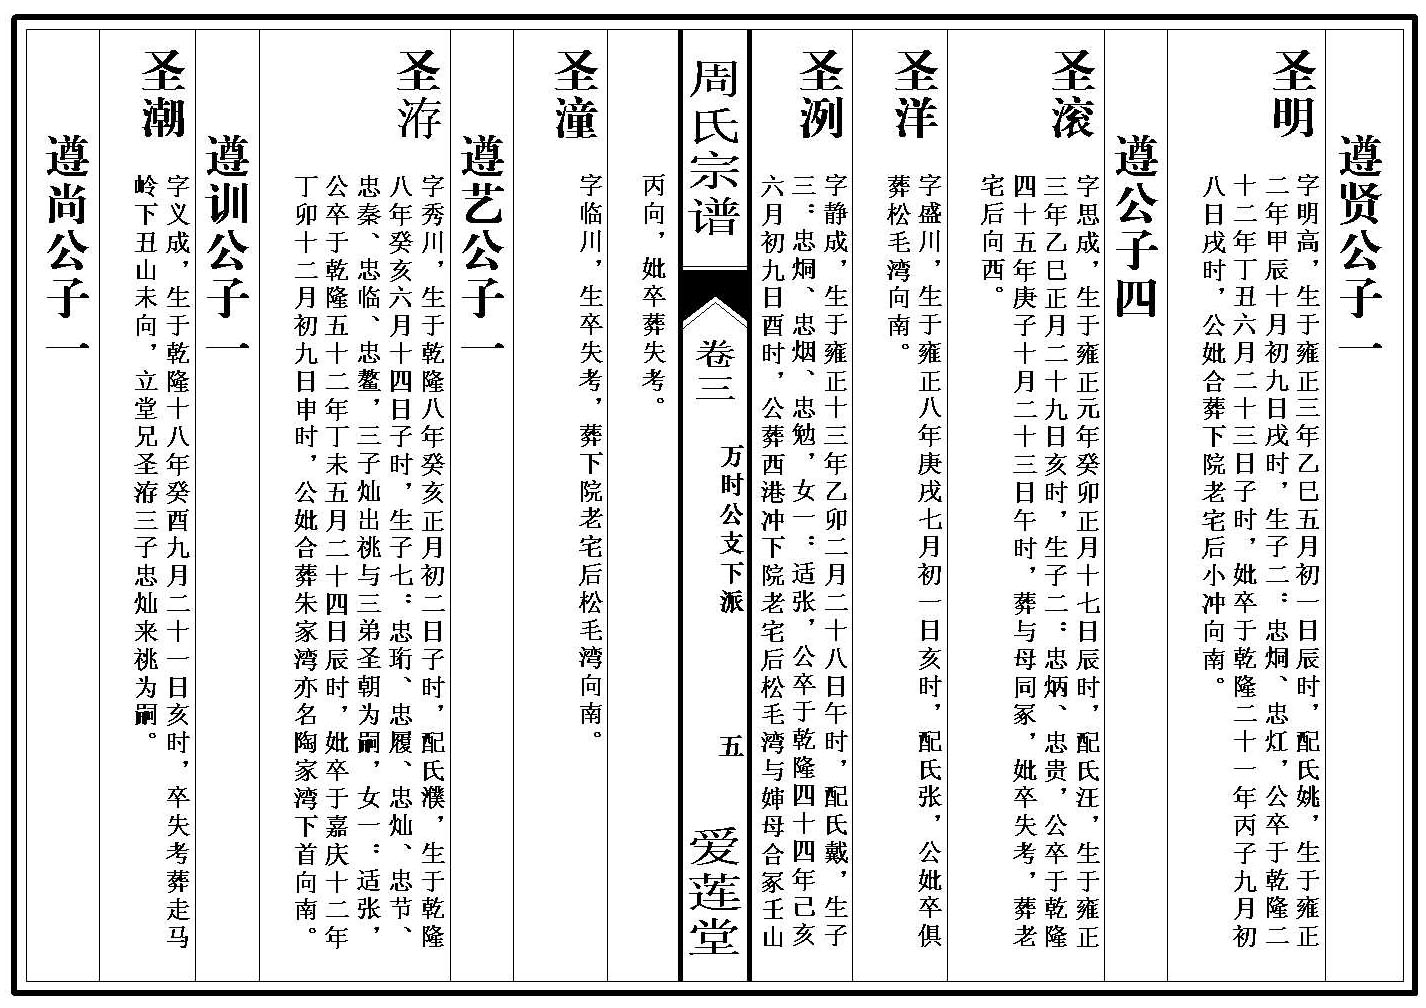 遵贤公子一
圣明
字明高，生于雍正三年乙巳五月初一日辰时，配氏姚，生于雍正
二年甲辰十月初九日戌时，生子二：忠炯、忠灯，公卒于乾隆二
十二年丁丑六月二十三日子时，妣卒于乾隆二十一年丙子九月初
八日戌时，公妣合葬下院老宅后小冲向南。
遵公子四
圣滚
字思成，生于雍正元年癸卯正月十七日辰时，配氏汪，生于雍正
三年乙巳正月二十九日亥时，生子二：忠炳、忠贵，公卒于乾隆
四十五年庚子十月二十三日午时，葬与母同冢，妣卒失考，葬老
宅后向西。
圣洋
字盛川，生于雍正八年庚戌七月初一日亥时，配氏张，公妣卒俱
葬松毛湾向南。
圣洌
字静成，生于雍正十三年乙卯二月二十八日午时，配氏戴，生子
三：忠炯、忠烟、忠勉，女一：适张，公卒于乾隆四十四年己亥
六月初九日酉时，公葬西港冲下院老宅后松毛湾与婶母合冢壬山
周氏宗谱
卷三
万时公支下派
五
爱莲堂
丙向，妣卒葬失考。
圣潼
字临川，生卒失考，葬下院老宅后松毛湾向南。
遵艺公子一
圣洊
字秀川，生于乾隆八年癸亥正月初二日子时，配氏濮，生于乾隆
八年癸亥六月十四日子时，生子七：忠珩、忠履、忠灿、忠节、
忠秦、忠临、忠鳌，三子灿出祧与三弟圣朝为嗣，女一：适张，
公卒于乾隆五十二年丁未五月二十四日辰时，妣卒于嘉庆十二年
丁卯十二月初九日申时，公妣合葬朱家湾亦名陶家湾下首向南。
遵训公子一
圣潮
字义成，生于乾隆十八年癸酉九月二十一日亥时，卒失考葬走马
岭下丑山未向，立堂兄圣洊三子忠灿来祧为嗣。
遵尚公子一